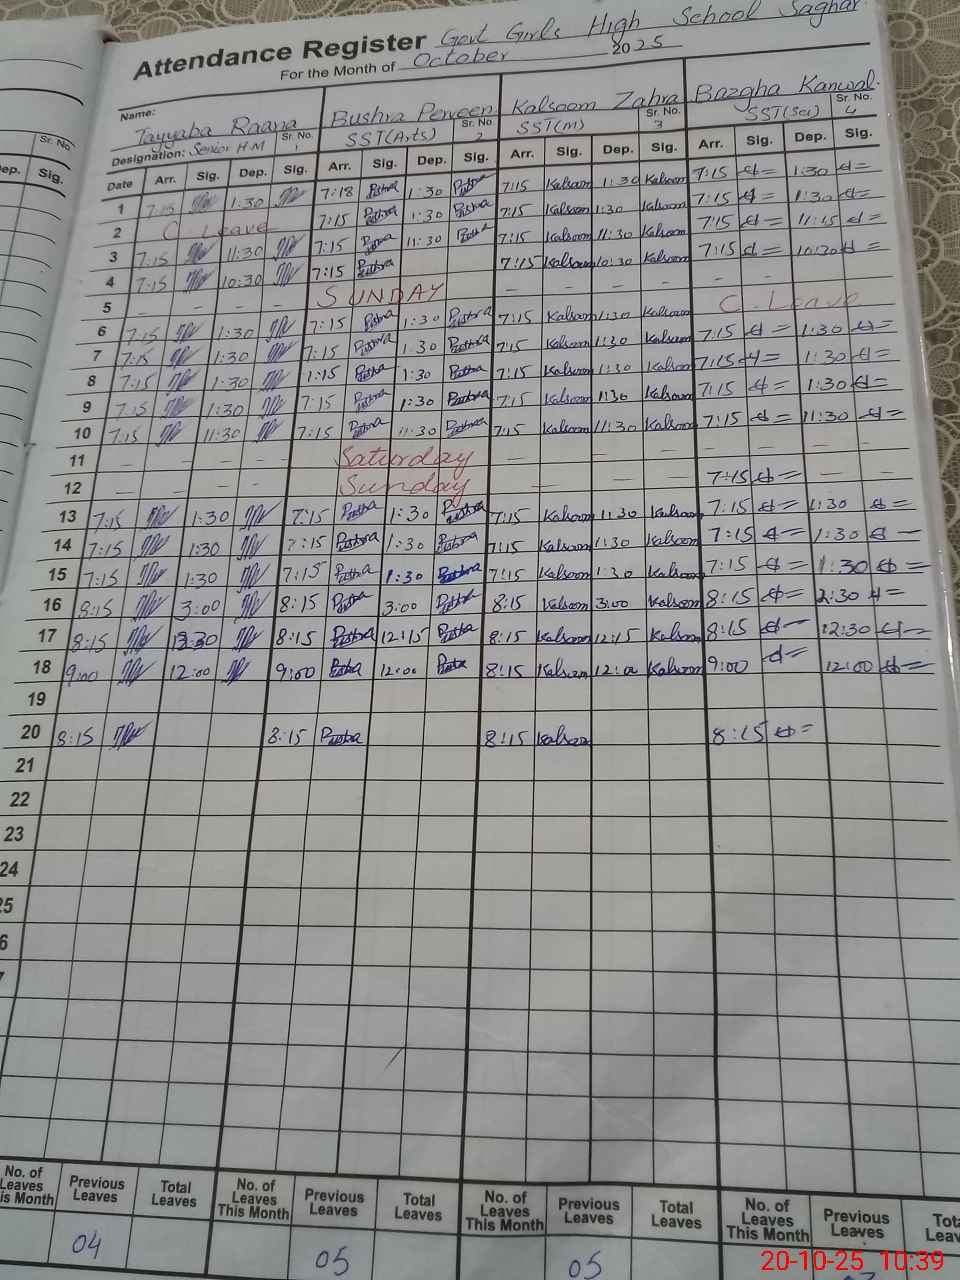 Attendance Register Govt Girls High School Saghar
For the Month of October 2025
Name: Tayyaba Raana Bushra Perveen Kalsoom Zahra Bazgha Kanwal
Designation: Senior H.M Sr. No. 1 SST(Arts) Sr. No. 2 SST(M) Sr. No. 3 SST(Sci) Sr. No. 4
Date Arr. Sig. Dep. Sig. Arr. Sig. Dep. Sig. Arr. Sig. Dep. Sig. Arr. Sig. Dep. Sig.
1 7:15 1:30 7:18 1:30 7:15 Kalsoom 1:30 Kalsoom 7:15 1:30
2 C. Leave 7:15 1:30 7:15 Kalsoom 1:30 Kalsoom 7:15 1:30
3 7:15 11:30 7:15 11:30 7:15 Kalsoom 11:30 Kalsoom 7:15 11:15
4 7:15 10:30 7:15 7:15 Kalsoom 10:30 Kalsoom 7:15 10:30
5 - - - - SUNDAY - - - - - - - -
6 7:15 1:30 7:15 1:30 7:15 Kalsoom 1:30 Kalsoom C. Leave
7 7:15 1:30 7:15 1:30 7:15 Kalsoom 1:30 Kalsoom 7:15 1:30
8 7:15 1:30 1:15 1:30 7:15 Kalsoom 1:30 Kalsoom 7:15 1:30
9 7:15 1:30 7:15 1:30 7:15 Kalsoom 1:30 Kalsoom 7:15 1:30
10 7:15 11:30 7:15 11:30 7:15 Kalsoom 11:30 Kalsoom 7:15 11:30
11 - - - - Saturday - - - - - - - -
12 - - - - Sunday - - - 7:15 - -
13 7:15 1:30 7:15 1:30 7:15 Kalsoom 1:30 Kalsoom 7:15 1:30
14 7:15 1:30 7:15 1:30 7:15 Kalsoom 1:30 Kalsoom 7:15 1:30
15 7:15 1:30 7:15 1:30 7:15 Kalsoom 1:30 Kalsoom 7:15 1:30
16 8:15 3:00 8:15 3:00 8:15 Kalsoom 3:00 Kalsoom 8:15 2:30
17 8:15 8:15 12:15 8:15 Kalsoom 12:15 Kalsoom 8:15 12:30
18 9:00 12:00 9:00 12:00 8:15 Kalsoom Kalsoom 9:00 12:00
19
20 8:15 8:15 8:15 Kalsoom 8:15
21
22
23
24
25
6
7
No. of Leaves This Month Previous Leaves Total Leaves No. of Leaves This Month Previous Leaves Total Leaves No. of Leaves This Month Previous Leaves Total Leaves No. of Leaves This Month Previous Leaves
04 05 05
20-10-25 10:39